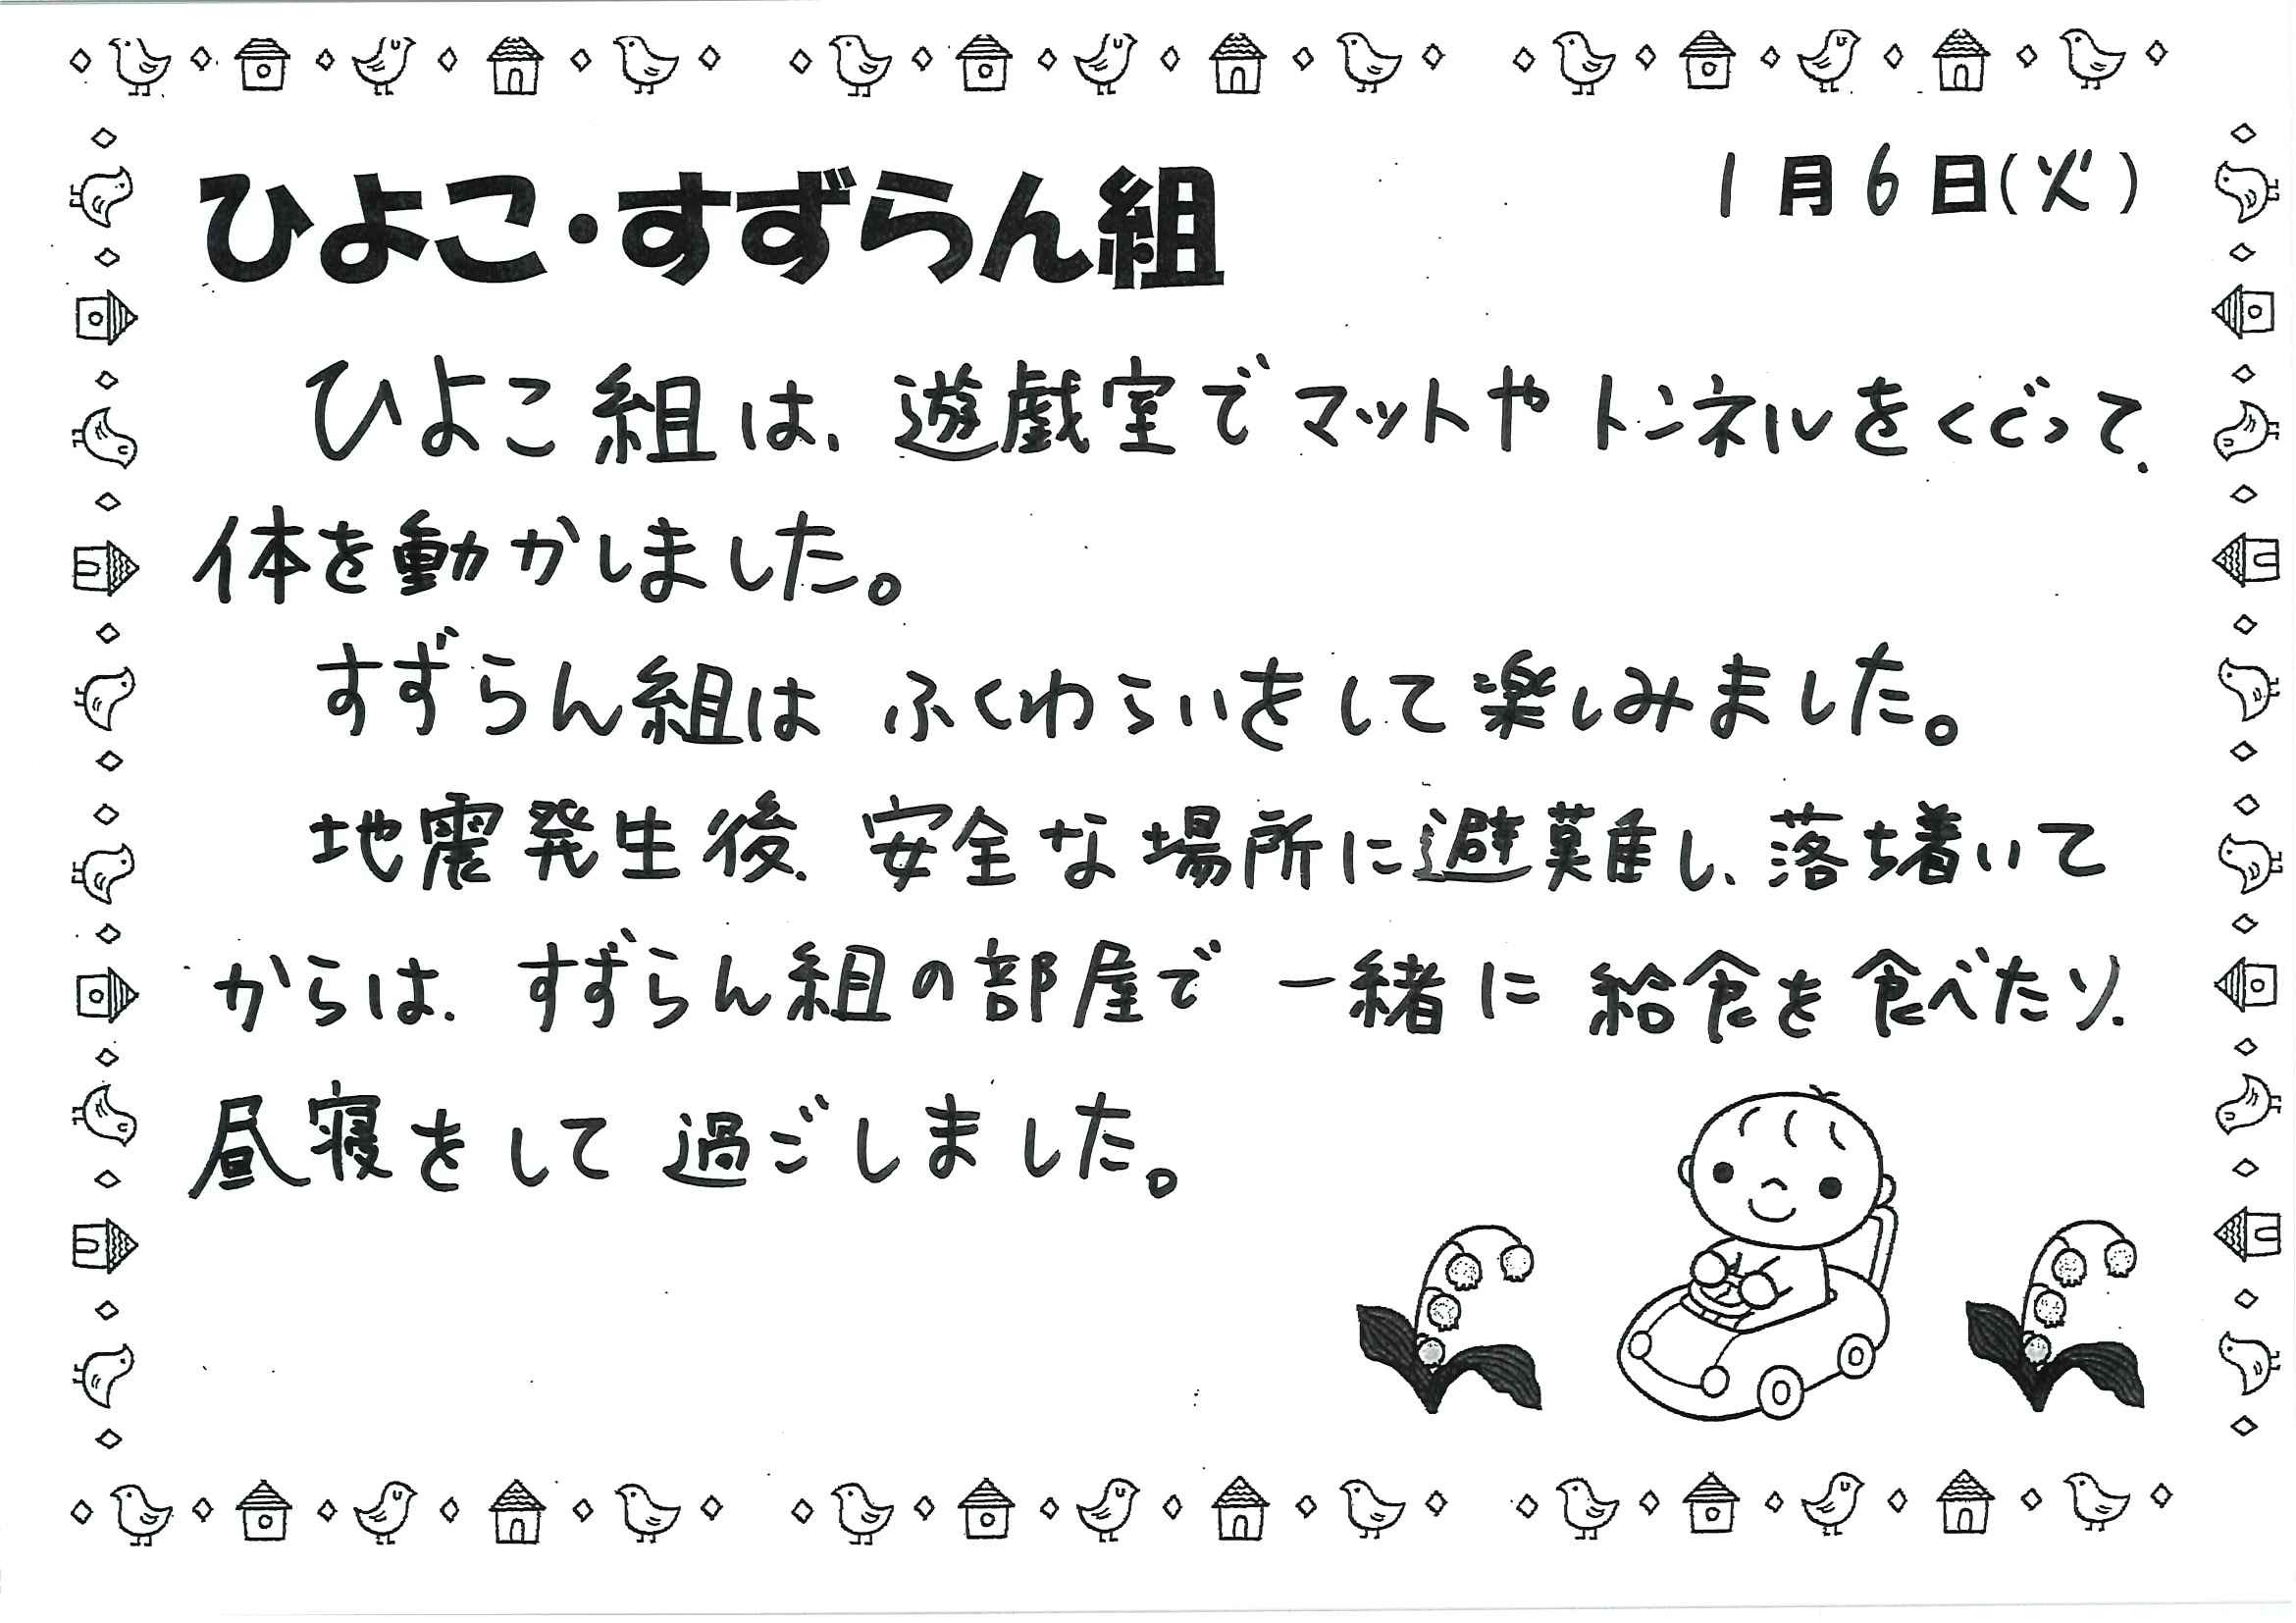 ひよこ・すずらん組
1月6日(火)
ひよこ組は、遊戯室でマットやトンネルをくぐって、
体を動かしました。
すずらん組は ふくわらいをして楽しみました。
地震発生後、安全な場所に避難し、落ち着いて
からは、すずらん組の部屋で一緒に給食を食べたり、
昼寝をして過ごしました。